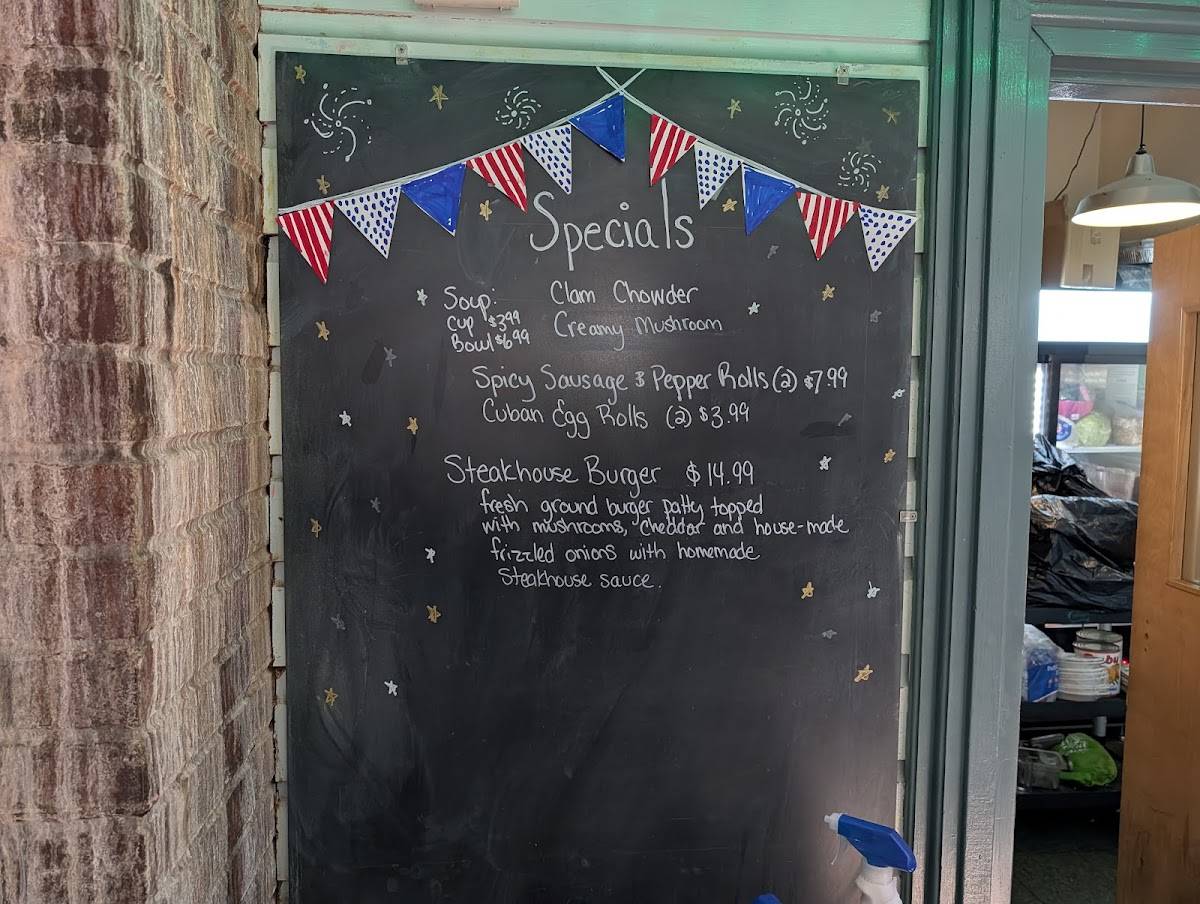 Specials
Soup: Clam Chowder
Cup $3.99 Creamy Mushroom
Bowl $6.99
Spicy Sausage & Pepper Rolls (2) $7.99
Cuban Egg Rolls (2) $3.99
Steakhouse Burger $14.99
fresh ground burger patty topped
with mushrooms, cheddar and house-made
frizzled onions with homemade
Steakhouse sauce.